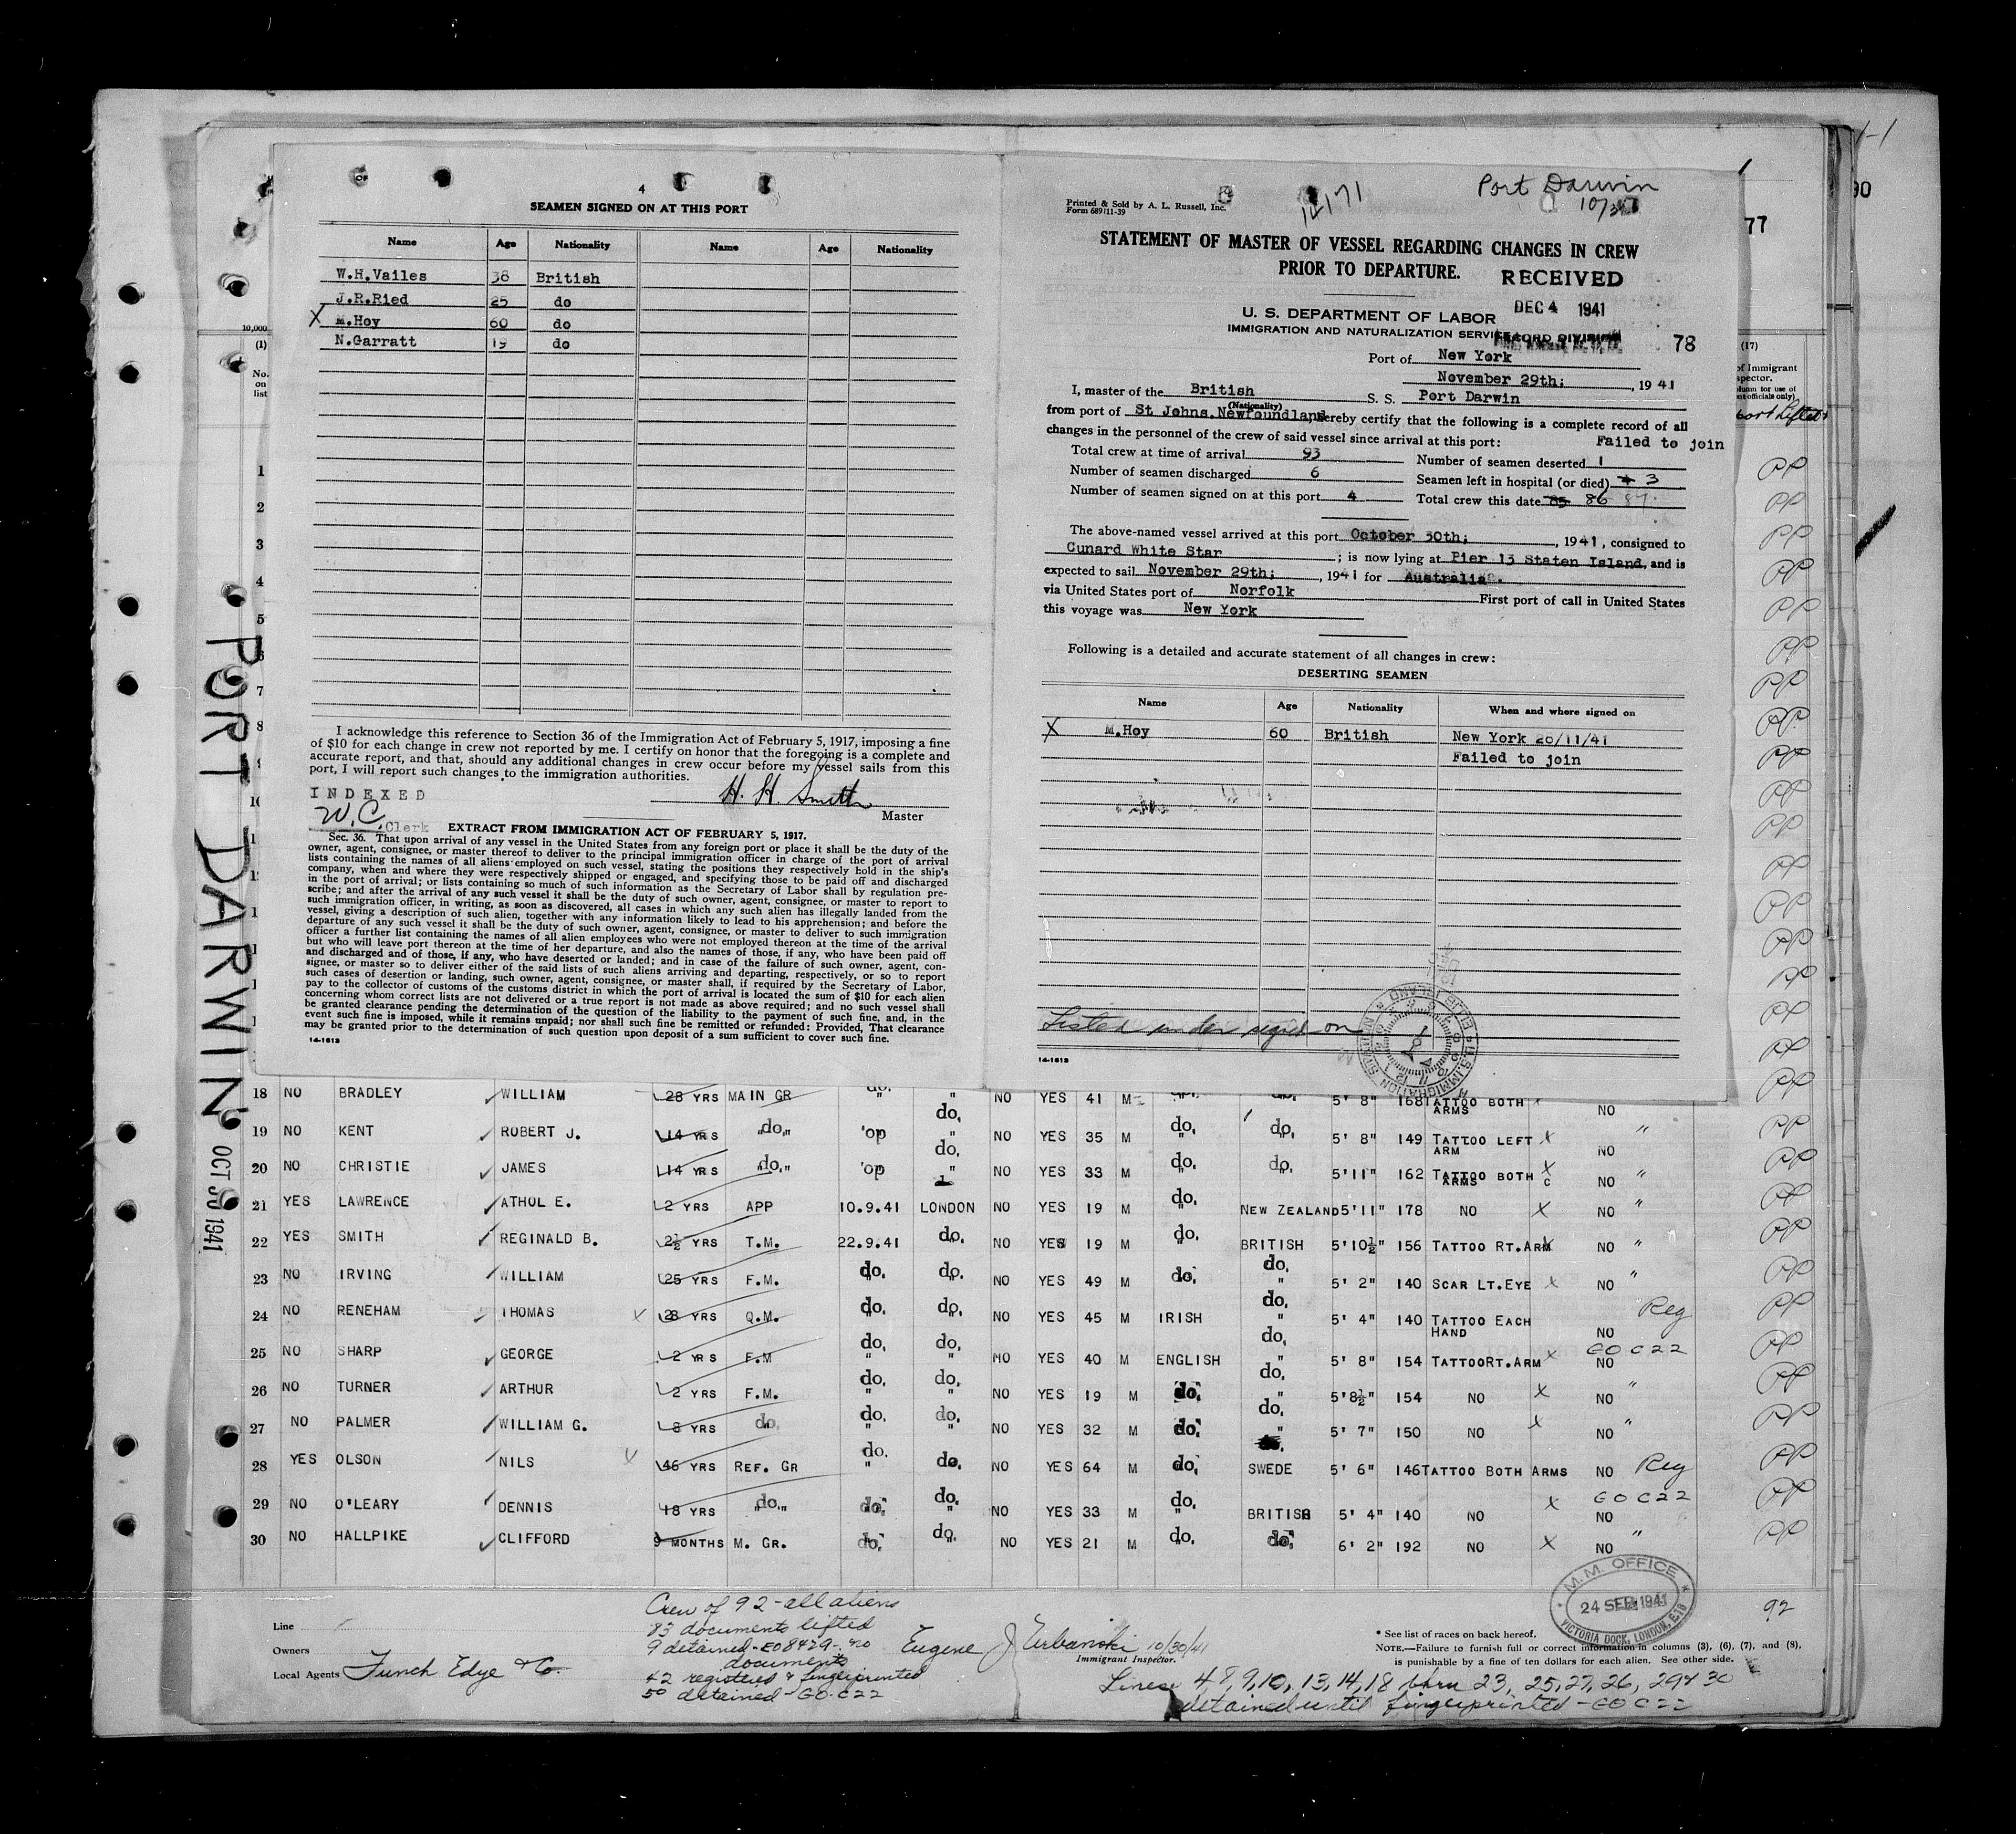 4
SEAMEN SIGNED ON AT THIS PORT
Name Age Nationality Name Age Nationality
W.H.Vailes 38 British
J.R.Ried 25 do
X M.Hoy 60 do
N.Garratt 19 do
I acknowledge this reference to Section 36 of the Immigration Act of February 5, 1917, imposing a fine
of $10 for each change in crew not reported by me. I certify on honor that the foregoing is a complete and
accurate report, and that, should any additional changes in crew occur before my vessel sails from this
port, I will report such changes to the immigration authorities.
INDEXED
H. H. Smith
Master
W.C. Clerk
EXTRACT FROM IMMIGRATION ACT OF FEBRUARY 5, 1917.
Sec. 36. That upon arrival of any vessel in the United States from any foreign port or place it shall be the duty of the
owner, agent, consignee, or master thereof to deliver to the principal immigration officer in charge of the port of arrival
lists containing the names of all aliens employed on such vessel, stating the positions they respectively hold in the ship's
company, when and where they were respectively shipped or engaged, and specifying those to be paid off and discharged
in the port of arrival; or lists containing so much of such information as the Secretary of Labor shall by regulation pre-
scribe; and after the arrival of any such vessel it shall be the duty of such owner, agent, consignee, or master to report to
such immigration officer, in writing, as soon as discovered, all cases in which any such alien has illegally landed from the
vessel, giving a description of such alien, together with any information likely to lead to his apprehension; and before the
departure of any such vessel it shall be the duty of such owner, agent, consignee, or master to deliver to such immigration
officer a further list containing the names of all alien employees who were not employed thereon at the time of the arrival
but who will leave port thereon at the time of her departure, and also the names of those, if any, who have been paid off
and discharged and of those, if any, who have deserted or landed; and in case of the failure of such owner, agent, con-
signee, or master so to deliver either of the said lists of such aliens arriving and departing, respectively, or so to report
such cases of desertion or landing, such owner, agent, consignee, or master shall, if required by the Secretary of Labor,
pay to the collector of customs of the customs district in which the port of arrival is located the sum of $10 for each alien
concerning whom correct lists are not delivered or a true report is not made as above required; and no such vessel shall
be granted clearance pending the determination of the question of the liability to the payment of such fine, and, in the
event such fine is imposed, while it remains unpaid; nor shall such fine be remitted or refunded: Provided, That clearance
may be granted prior to the determination of such question upon deposit of a sum sufficient to cover such fine.
14-1613
Printed & Sold by A. L. Russell, Inc.
Form 689/11-39
Port Darwin
STATEMENT OF MASTER OF VESSEL REGARDING CHANGES IN CREW
PRIOR TO DEPARTURE.
RECEIVED
DEC 4 1941
U. S. DEPARTMENT OF LABOR
IMMIGRATION AND NATURALIZATION SERVICE
RECORD DIVISION
78
Port of New York
November 29th; , 1941
I, master of the British S. S. Port Darwin
(Nationality)
from port of St Johns.Newfoundland hereby certify that the following is a complete record of all
changes in the personnel of the crew of said vessel since arrival at this port:
Failed to join
Total crew at time of arrival 93 Number of seamen deserted 1
Number of seamen discharged 6 Seamen left in hospital (or died) 4 3
Number of seamen signed on at this port 4 Total crew this date 85 86 87.
The above-named vessel arrived at this port October 30th; , 1941, consigned to
Cunard White Star ; is now lying at Pier 13 Staten Island, and is
expected to sail November 29th; , 1941 for Australia.
via United States port of Norfolk First port of call in United States
this voyage was New York
Following is a detailed and accurate statement of all changes in crew:
DESERTING SEAMEN
Name Age Nationality When and where signed on
X M.Hoy 60 British New York 26/11/41
Failed to join
Listed under signed on
14-1613
PORT DARWIN
OCT 30 1941
10,000
(1)
No.
on
list
1
2
3
4
5
6
7
8
77
90
(17)
of Immigrant
port lifted
18 NO BRADLEY WILLIAM 28 YRS MAIN GR " " NO YES 41 M 5' 8" 168 TATTOO BOTH ARMS NO
19 NO KENT ROBERT J. 14 YRS do. do. do. NO YES 35 M do. do. 5' 8" 149 TATTOO LEFT ARM X NO "
20 NO CHRISTIE JAMES 14 YRS do. do. do. NO YES 33 M do. do. 5'11" 162 TATTOO BOTH ARMS X NO "
21 YES LAWRENCE ATHOL E. 2 YRS APP 10.9.41 LONDON NO YES 19 M do. NEW ZEALAND 5'11" 178 NO X NO "
22 YES SMITH REGINALD B. 2½ YRS T.M. 22.9.41 do. NO YES 19 M do. BRITISH 5'10½" 156 TATTOO RT.ARM NO "
23 NO IRVING WILLIAM 25 YRS F.M. do. do. NO YES 49 M do. do. 5' 2" 140 SCAR LT.EYE X NO "
24 NO RENEHAM THOMAS 28 YRS Q.M. do. do. NO YES 45 M IRISH do. 5' 4" 140 TATTOO EACH HAND NO Reg
25 NO SHARP GEORGE 2 YRS F.M do. do. NO YES 40 M ENGLISH do. 5' 8" 154 TATTOO RT.ARM X NO GO C22
26 NO TURNER ARTHUR 2 YRS F.M. do. do. NO YES 19 M do. do. 5'8½" 154 NO X NO "
27 NO PALMER WILLIAM G. 8 YRS do. do. do. NO YES 32 M do. do. 5' 7" 150 NO X NO "
28 YES OLSON NILS 46 YRS REF. GR do. do. NO YES 64 M do. SWEDE 5' 6" 146 TATTOO BOTH ARMS NO Reg
29 NO O'LEARY DENNIS 18 YRS do. do. do. NO YES 33 M do. BRITISH 5' 4" 140 NO X NO GO C22
30 NO HALLPIKE CLIFFORD 9 MONTHS M. GR. do. do. NO YES 21 M do. do. 6' 2" 192 NO X NO "
Line
Owners
Local Agents Funch Edye & Co.
Crew of 92 - all aliens
83 documents lifted
9 detained - E08429 - no
documents
42 registered & fingerprinted
50 detained - GO C22
Eugene J Urbanski 10/30/41
Immigrant Inspector.
M. M. OFFICE
24 SEP 1941
VICTORIA DOCK, LONDON, E.16
92
* See list of races on back hereof.
NOTE.—Failure to furnish full or correct information in columns (3), (6), (7), and (8),
is punishable by a fine of ten dollars for each alien. See other side.
Lines 4, 8, 9, 10, 13, 14, 18 thru 23, 25, 27, 26, 29 & 30
detained until fingerprinted - GO C22